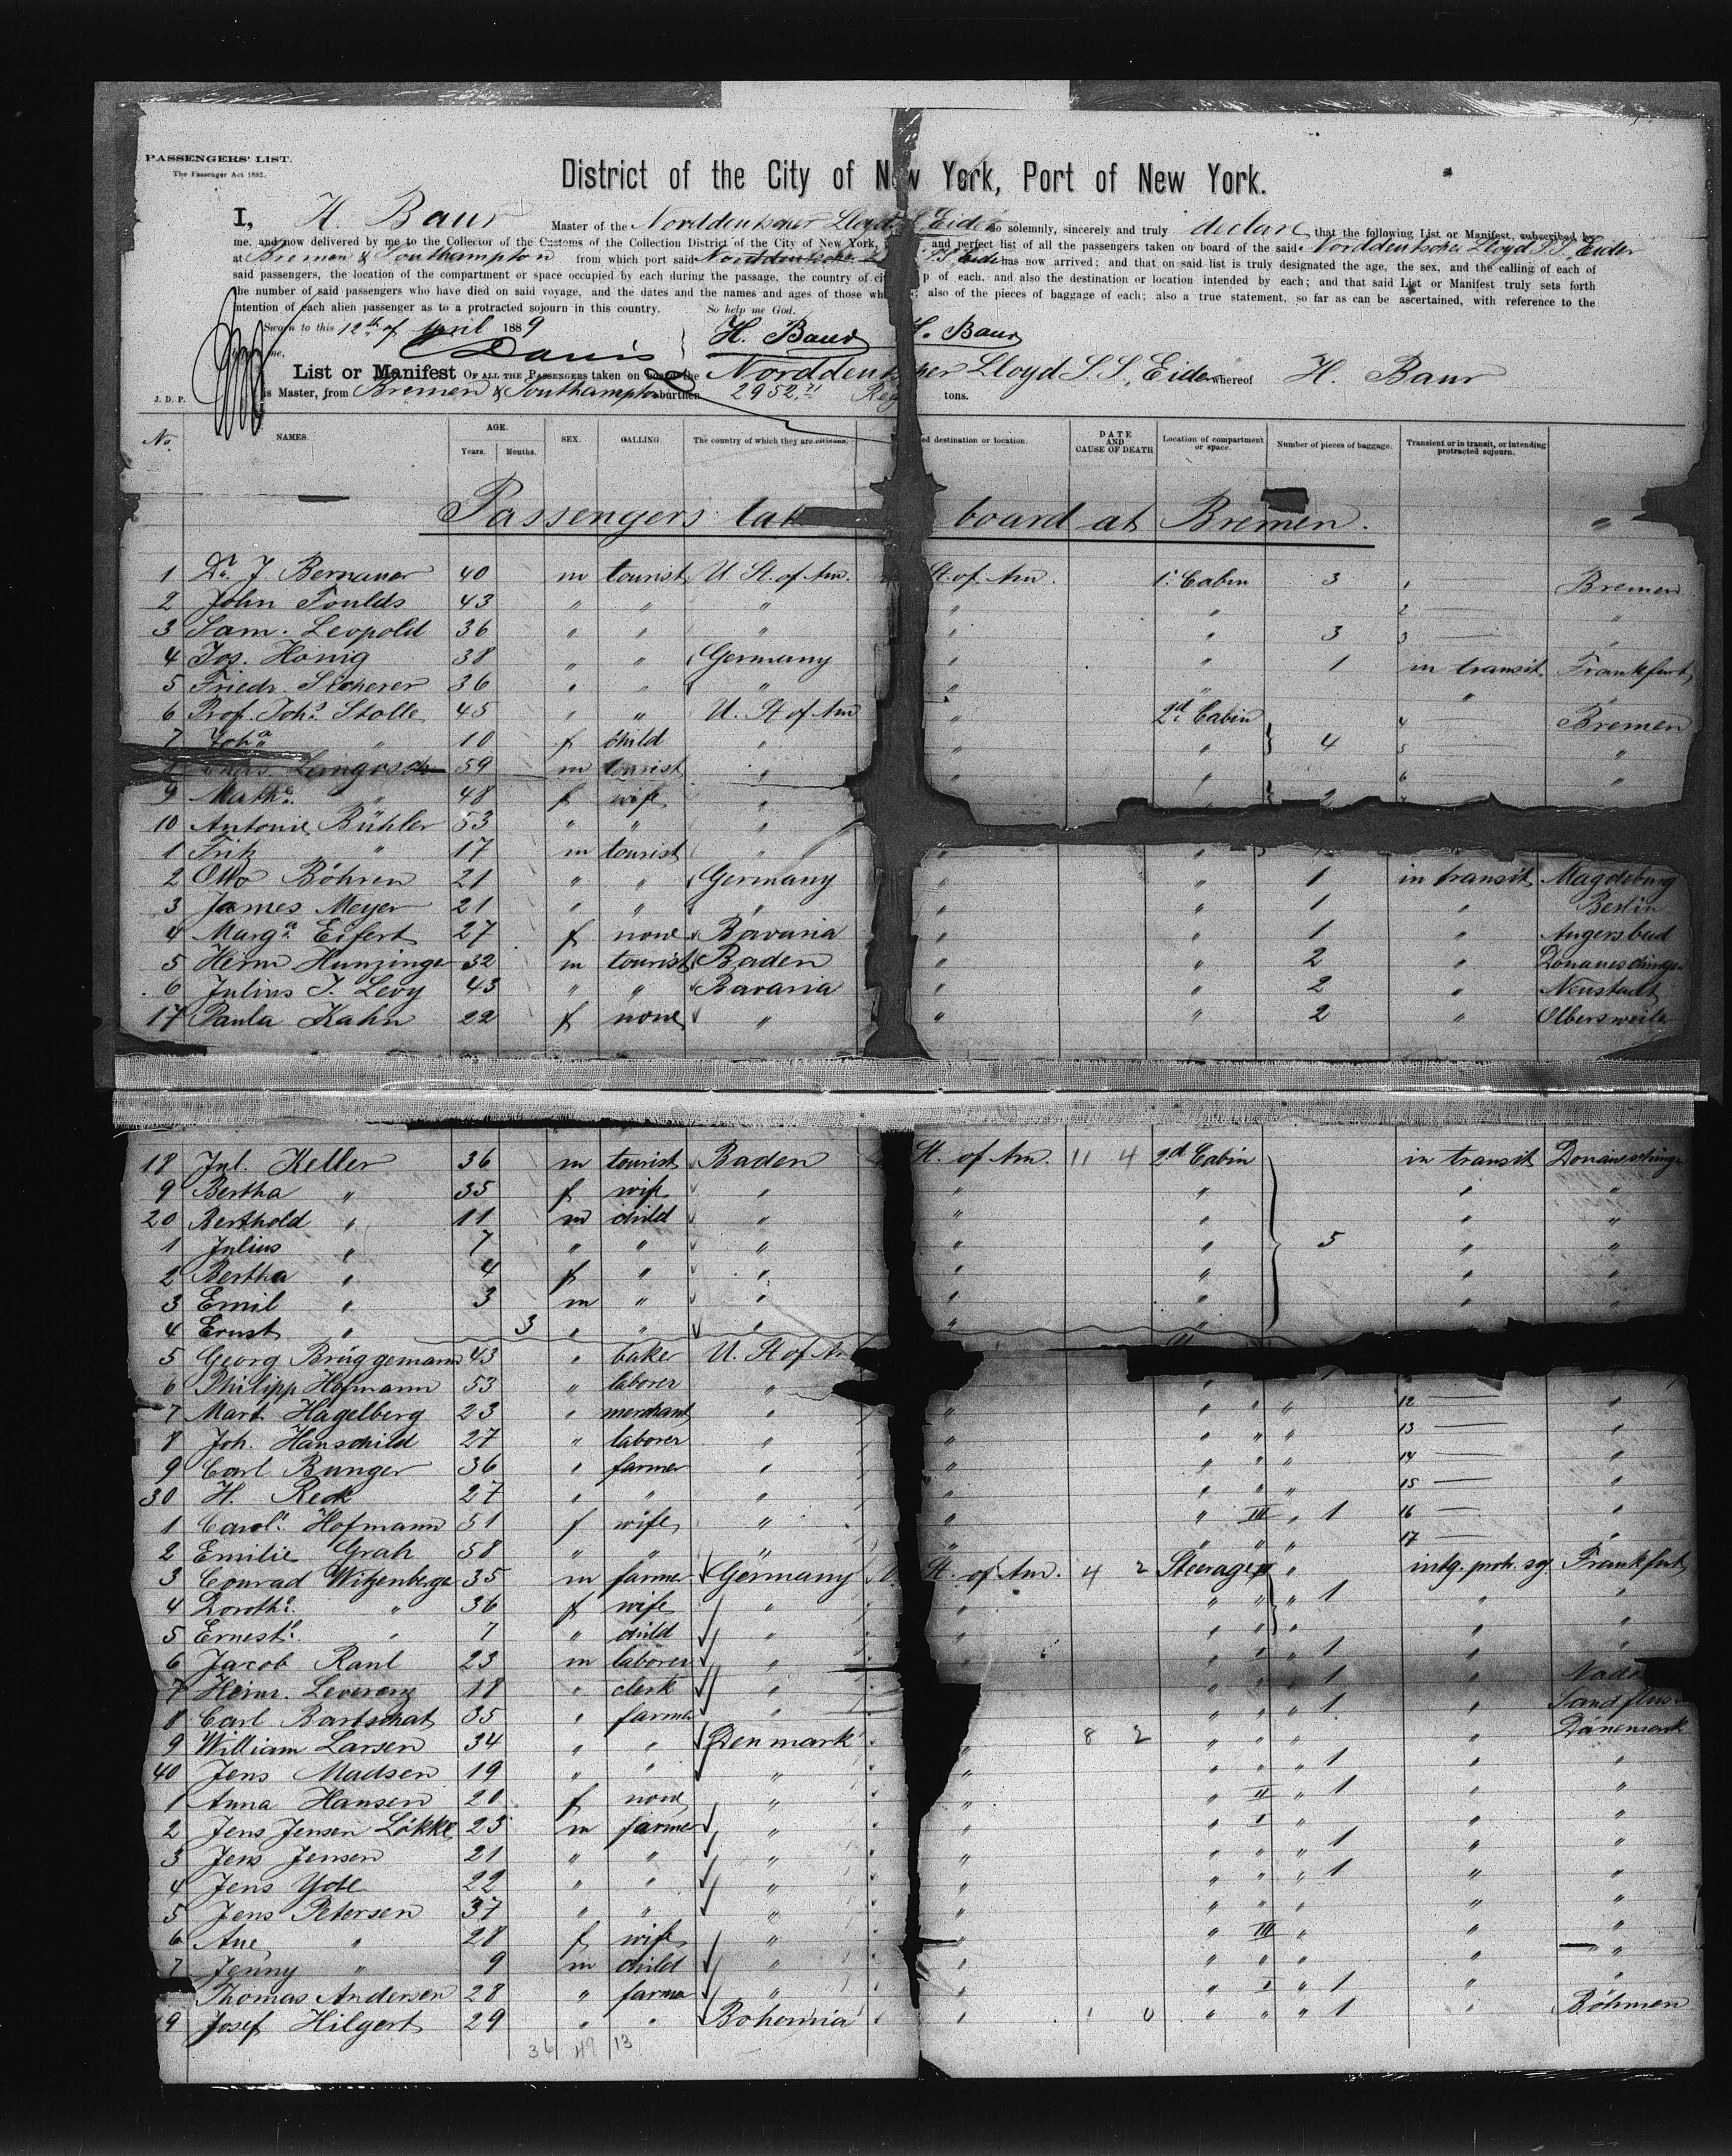 PASSENGERS' LIST.
The Passenger Act 1882.
District of the City of New York, Port of New York.
I, H. Baur Master of the Norddeutscher Lloyd Eider do solemnly, sincerely and truly declare that the following List or Manifest, subscribed by
me, and now delivered by me to the Collector of the Customs of the Collection District of the City of New York, and perfect list of all the passengers taken on board of the said Norddeutscher Lloyd S.S. Eider
at Bremen & Southampton from which port said Norddeutscher S.S. Eider has now arrived; and that on said list is truly designated the age, the sex, and the calling of each of
said passengers, the location of the compartment or space occupied by each during the passage, the country of cit p of each, and also the destination or location intended by each; and that said List or Manifest truly sets forth
the number of said passengers who have died on said voyage, and the dates and the names and ages of those wh ; also of the pieces of baggage of each; also a true statement, so far as can be ascertained, with reference to the
intention of each alien passenger as to a protracted sojourn in this country. So help me God.
Sworn to this 12th of April 1889 H. Baur H. Baur
me, Davis
List or Manifest OF ALL THE PASSENGERS taken on board the Norddeutscher Lloyd S.S. Eider whereof H. Baur
J. D. P. is Master, from Bremen & Southampton burthen 2952 Reg tons.
No. NAMES. AGE. Years. Months. SEX. CALLING The country of which they are citizens. ed destination or location. DATE AND CAUSE OF DEATH Location of compartment or space. Number of pieces of baggage. Transient or in transit, or intending protracted sojourn.
Passengers tak board at Bremen. "
1 Dr. J. Bernauer 40 m tourist U. St. of Am. St. of Am. 1. Cabin 3 1 Bremen
2 John Foulds 43 " " " " " 2 — "
3 Sam. Leopold 36 " " " " " 3 3 — "
4 Jos. Honig 38 " " Germany " " 1 in transit Frankfurt
5 Friedr. Scherer 36 " " " " " " "
6 Prof. Johs. Stolle 45 " " U. St of Am " 2d Cabin 4 — Bremen
7 Joha " 10 f child " " " 4 5 — "
Langosch 59 m tourist " " " 6 — "
9 Mathe. " 48 f wife " " 2
10 Antonie Bühler 53 " " "
1 Fritz " 17 m tourist " " "
2 Otto Böhren 21 " " Germany " " 1 in transit Magdeburg
3 James Meyer 21 " " " " " 1 " Berlin
4 Marga. Eifert 27 f none Bavaria " " 1 " Angersbud
5 Herm Hunzinger 32 m tourist Baden " " 2 " Donaueschingen
6 Julius J. Levy 43 " " Bavaria " " 2 " Neustadt
17 Paula Kahn 22 f none " " " 2 " Olbersweile
18 Jul. Keller 36 m tourist Baden St. of Am. 11 4 2d Cabin in transit Donaueschinge
9 Bertha " 35 f wife " " " " "
20 Berthold " 11 m child " " " " "
1 Julius " 7 " " " " " 5 " "
2 Bertha " 4 f " " " " " "
3 Emil " 3 m " " " " " "
4 Ernst " 3 " " " "
5 Georg Brüggemann 43 " baker U. St of Am
6 Philipp Hofmann 53 " laborer "
7 Mart. Hagelberg 23 " merchant " " " " " 12 — "
8 Joh. Hanschild 27 " laborer " " " " " 13 — "
9 Carl Bunger 36 " farmer " " " " " 14 — "
30 H. Reck 27 " " " " " " " 15 — "
1 Carole. Hofmann 51 f wife " " " III " 1 16 — "
2 Emilie Grah 58 " " " " " " " 17 — "
3 Conrad Witzenberge 35 m farmer Germany St. of Am. 4 2 Steerage " intg. prot. soj Frankfurt
4 Dorothe. " 36 f wife " " " " " 1 " "
5 Ernest. " 7 " child " " " " " " "
6 Jacob Rant 23 m laborer " " I " 1 " "
7 Heinr. Leverenz 18 " clerk " " " " 1 "
8 Carl Bartschat 35 " farmer " " " " 1 "
9 William Larsen 34 " " Denmark " 8 2 " " " " Dänemark
40 Jens Madsen 19 " " " " " " " 1 " "
1 Anna Hansen 20 f none " " " II " 1 " "
2 Jens Jensen Lökke 25 m farmer " " " I " " "
3 Jens Jensen 21 " " " " " " " 1 " "
4 Jens Yde 22 " " " " " " " 1 " "
5 Jens Petersen 37 " " " " " " " " "
6 Ane " 28 f wife " " " III " " "
7 Jenny " 9 m child " " " " " " "
Thomas Andersen 28 " farmer " " " I " 1 " "
9 Josef Hilgert 29 " " Bohemia " 1 0 " " " 1 " Böhmen
36 49 13